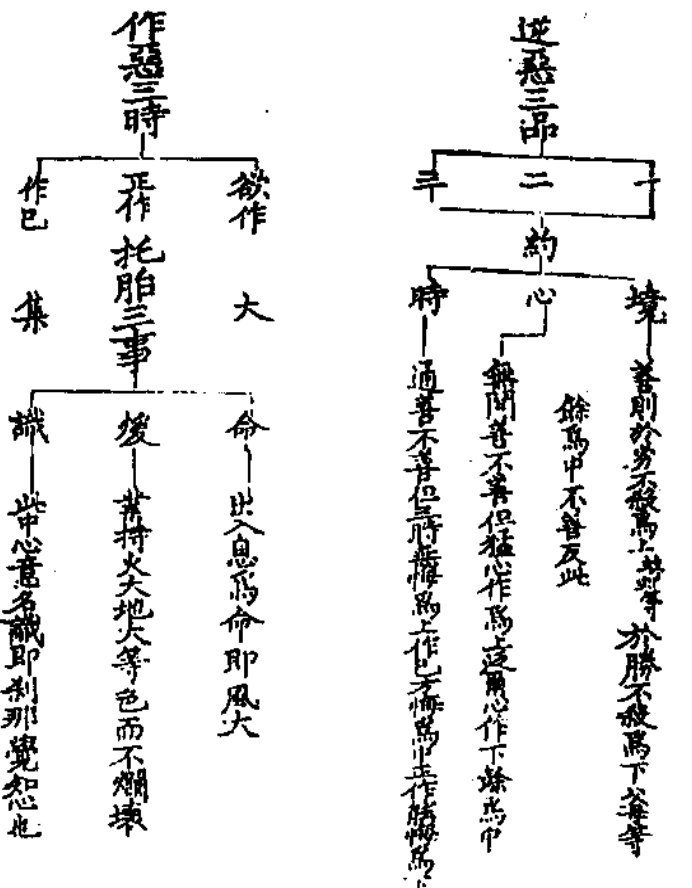 逆惡三品
一
二
三
約
境
心
時
善則於劣不殺為上蚊蚋等於勝不殺為下父母等
餘為中不善反此
無間善不善但猛心作為上泛爾心作下餘為中
通善不善但三時無悔為上作已方悔為中正作時悔為下
作惡三時
欲作
正作
作已
大
集
托胎三事
命
煖
識
出入息為命即風大
業持火大地水等色而不爛壞
此中心意名識即剎那覺知也